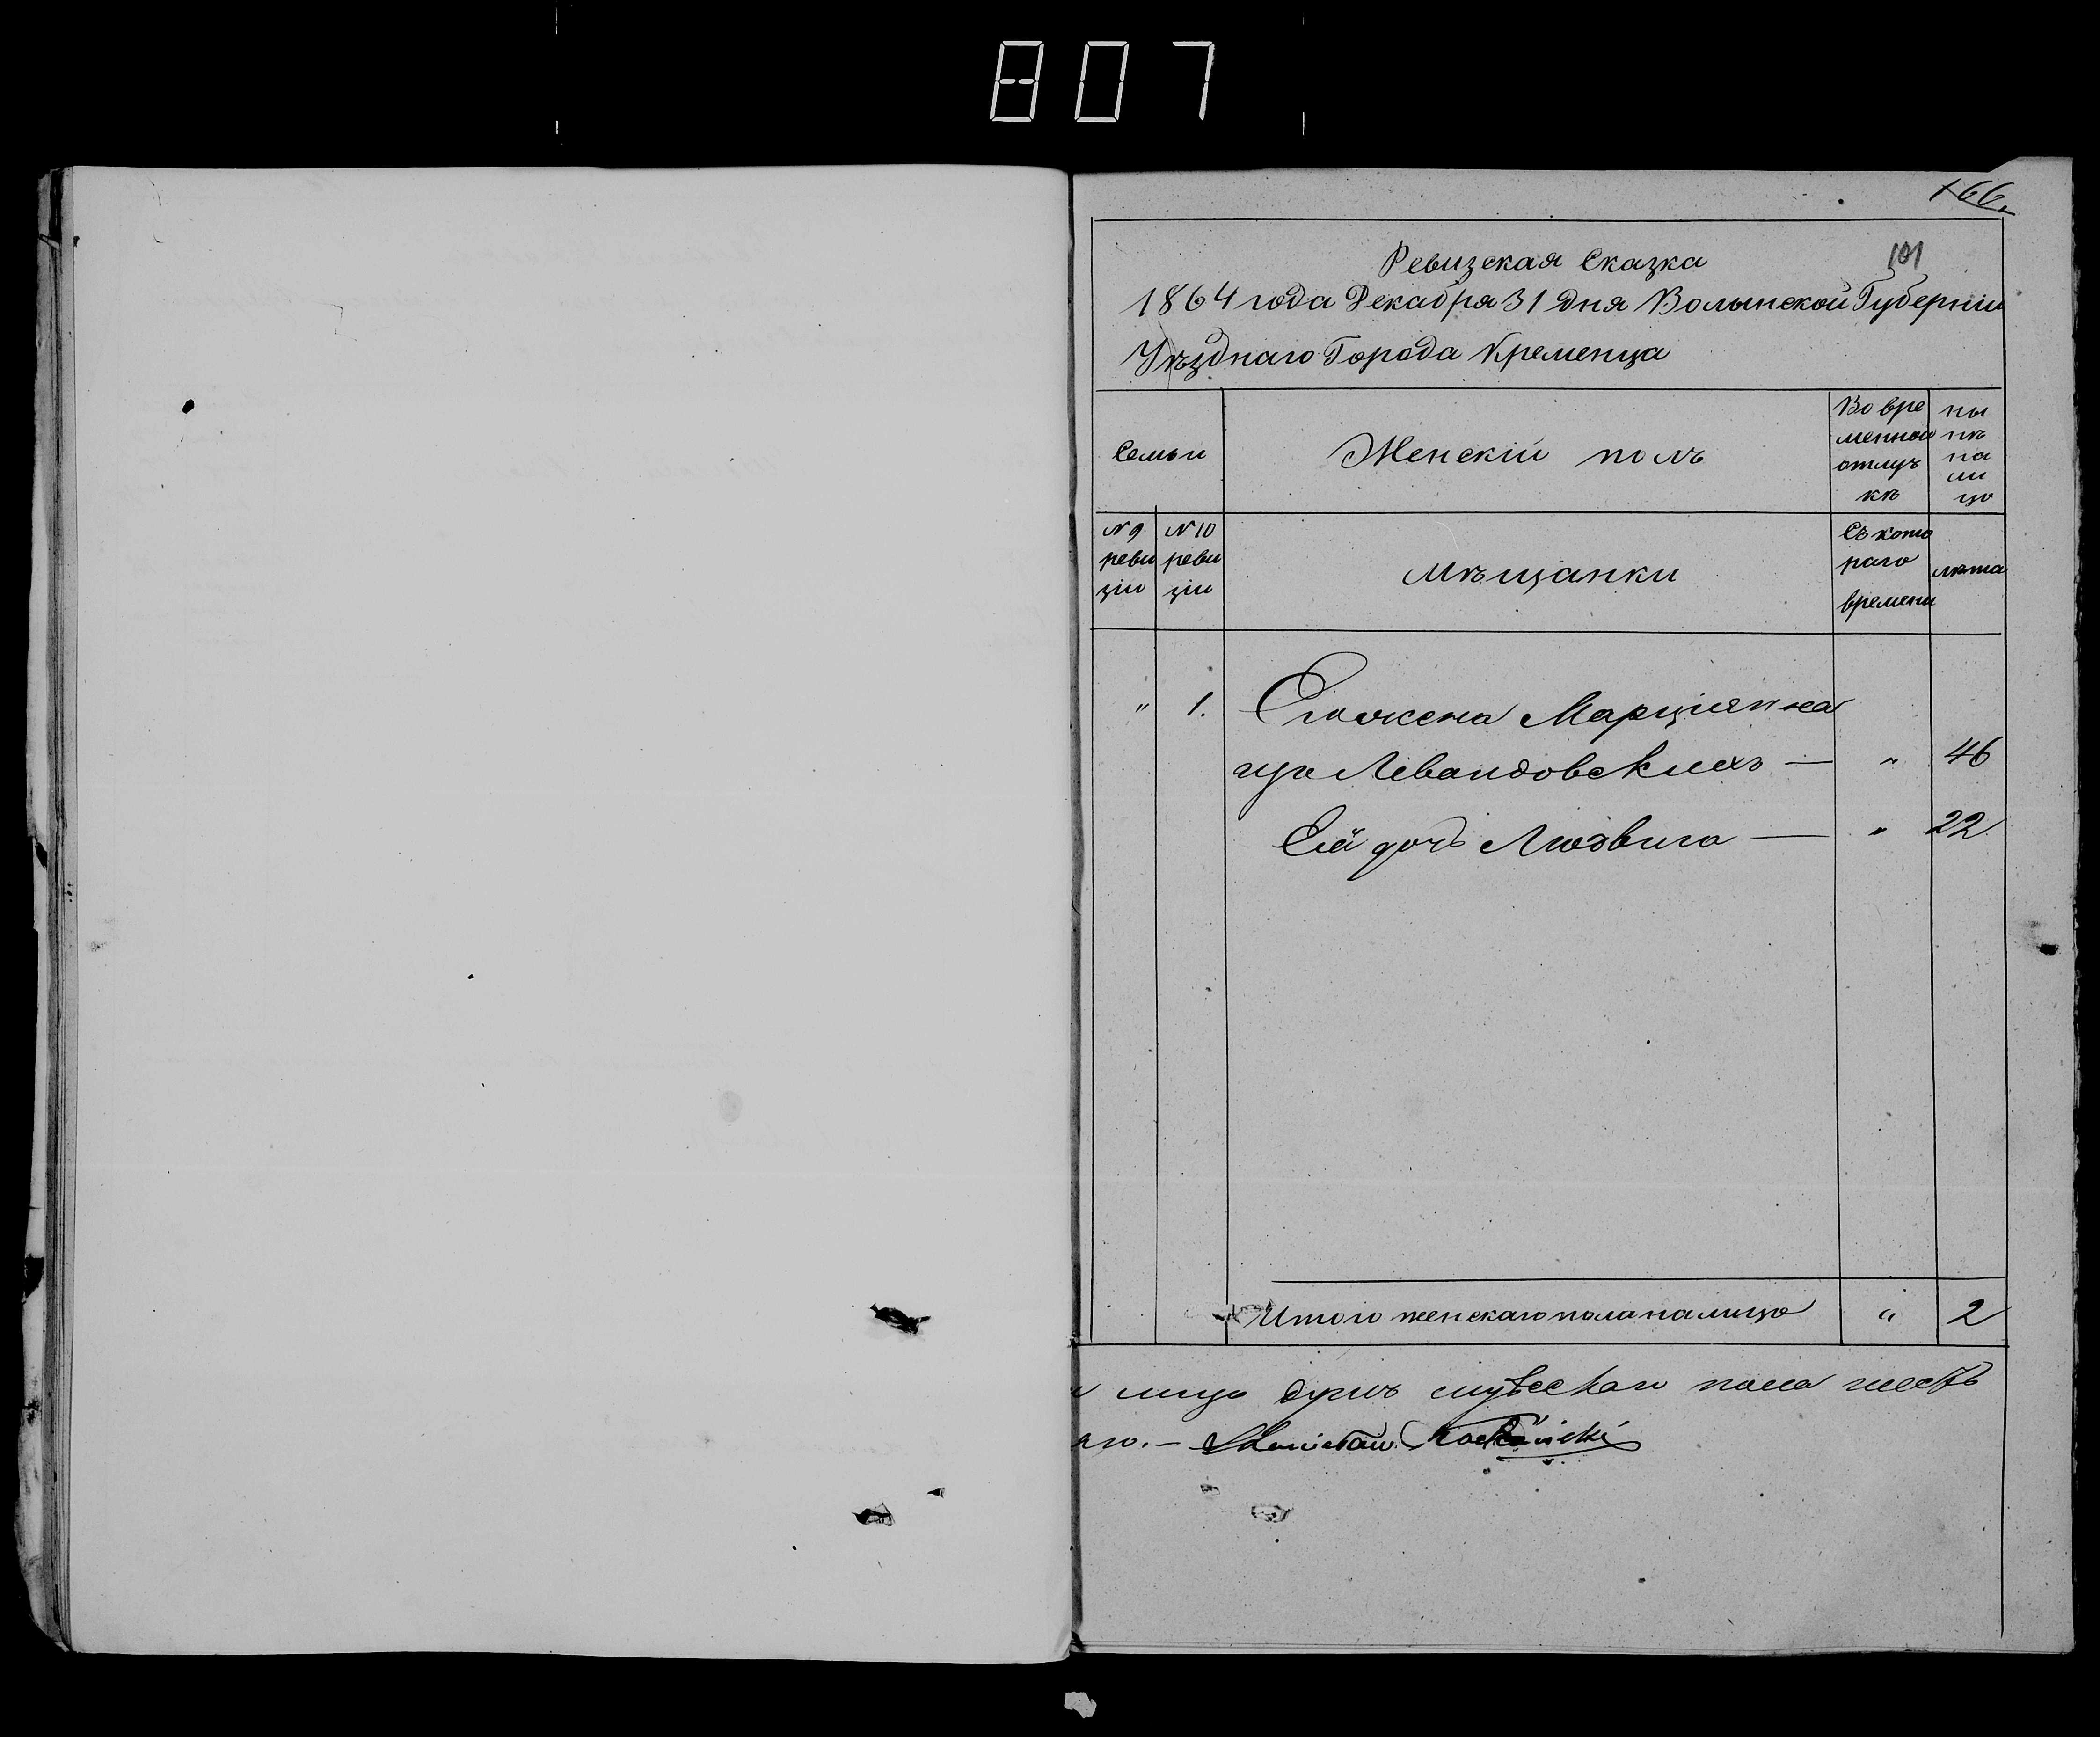 807
166
101
Ревизская Сказка
1864 года Декабря 31 дня Волынской Губерніи
Уѣзднаго Города Кременца
Семьи
Женскій полъ
Во вре
менной
отлуч
кѣ
ны
нѣ
на
ли
цо
№ 9
реви
зіи
№ 10
реви
зіи
Мѣщанки
Съ кото
раго
времени
лѣта
" 1. Его жена Марціянна
изъ Левандовскихъ — " 46
Ея дочь Людвига — " 22
Итого женскаго пола на лицо " 2
лицо душъ мужескаго пола шесть